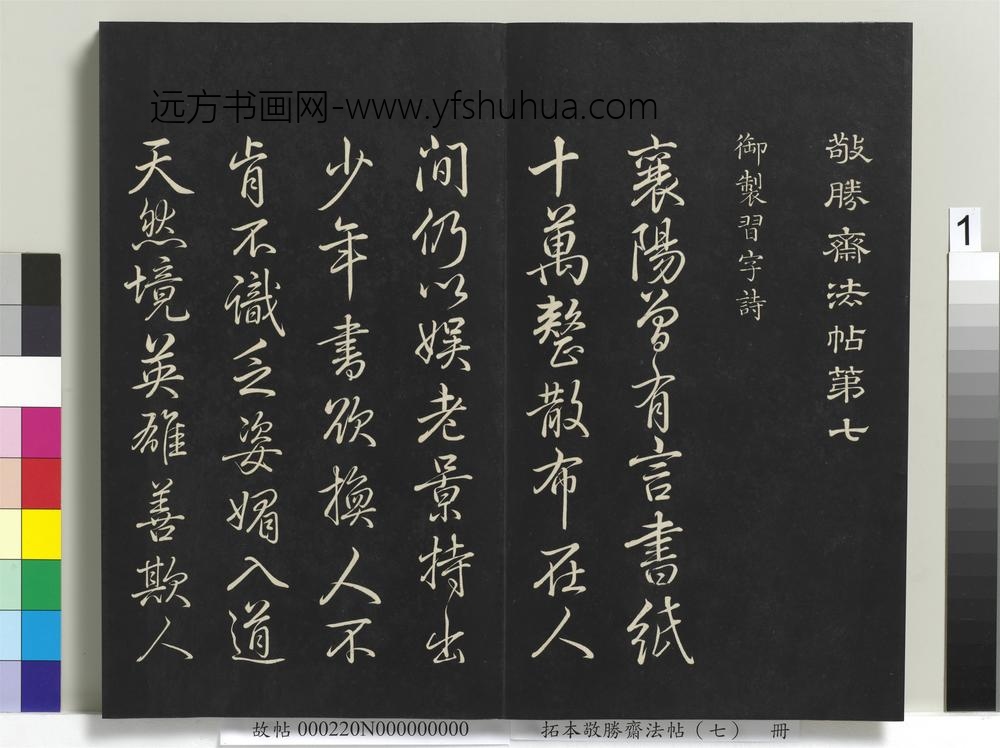 远方书画网-www.yfshuhua.com
敬勝齋法帖第七
御製習字詩
襄陽曾有言書紙
十萬整散布在人
间仍以娱老景持出
少年書欲換人不
肯不識乏姿媚入道
天然境英雄善欺人
1
故帖 000220N000000000
拓本敬勝齋法帖(七) 冊